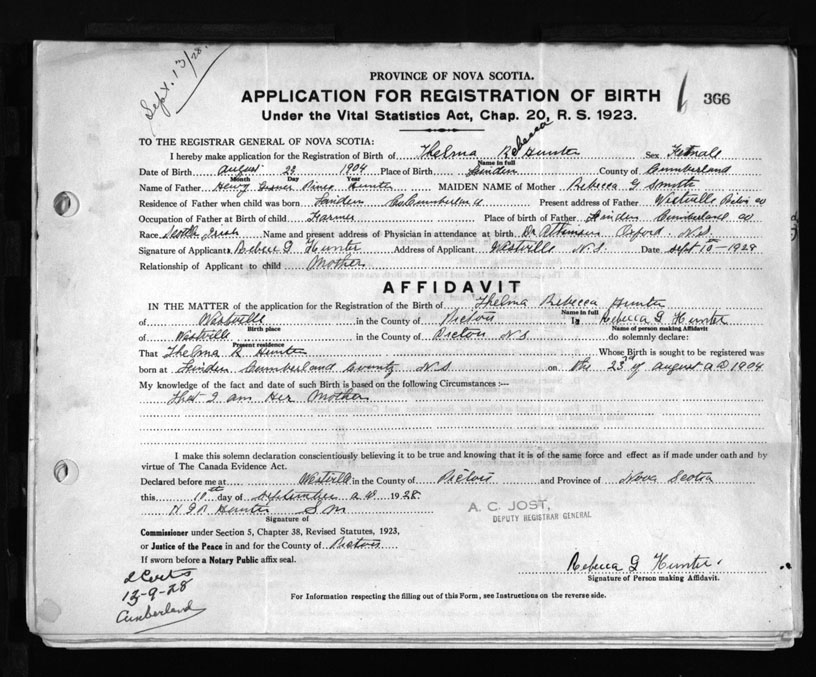 Sept. 13/28.
PROVINCE OF NOVA SCOTIA.
APPLICATION FOR REGISTRATION OF BIRTH
366
Under the Vital Statistics Act, Chap. 20, R. S. 1923.
TO THE REGISTRAR GENERAL OF NOVA SCOTIA:
I hereby make application for the Registration of Birth of Thelma Rebecca Hunter Sex Female
Name in full
Date of Birth August 23 1904 Place of Birth Linden County of Cumberland
Month Day Year
Name of Father Henry Hunter MAIDEN NAME of Mother Rebecca G Smyth
Residence of Father when child was born Linden Co Cumberland Present address of Father Westville Pictou co
Occupation of Father at Birth of child Farmer Place of birth of Father Linden Cumberland co
Race Scotch Irish Name and present address of Physician in attendance at birth Dr Atkinson Oxford N.S.
Signature of Applicant Rebecca G Hunter Address of Applicant Westville N.S. Date Sept 10th -1928
Relationship of Applicant to child Mother
AFFIDAVIT
IN THE MATTER of the application for the Registration of the Birth of Thelma Rebecca Hunter
Name in full
of Westville in the County of Pictou I, Rebecca G Hunter
Birth place Name of person making Affidavit
of Westville in the County of Pictou N.S do solemnly declare:
Present residence
That Thelma R Hunter Whose Birth is sought to be registered was
born at Linden Cumberland County N.S on the 23rd of August A D 1904
My knowledge of the fact and date of such Birth is based on the following Circumstances :—
That I am Her Mother
I make this solemn declaration conscientiously believing it to be true and knowing that it is of the same force and effect as if made under oath and by
virtue of The Canada Evidence Act.
Declared before me at Westville in the County of Pictou and Province of Nova Scotia
this 10th day of September A.D. 1928
Hunter S M
A. C. JOST,
DEPUTY REGISTRAR GENERAL
Signature of
Commissioner under Section 5, Chapter 38, Revised Statutes, 1923,
or Justice of the Peace in and for the County of Pictou
If sworn before a Notary Public affix seal.
Rebecca G Hunter
Signature of Person making Affidavit.
13-9-28
Cumberland
For Information respecting the filling out of this Form, see Instructions on the reverse side.